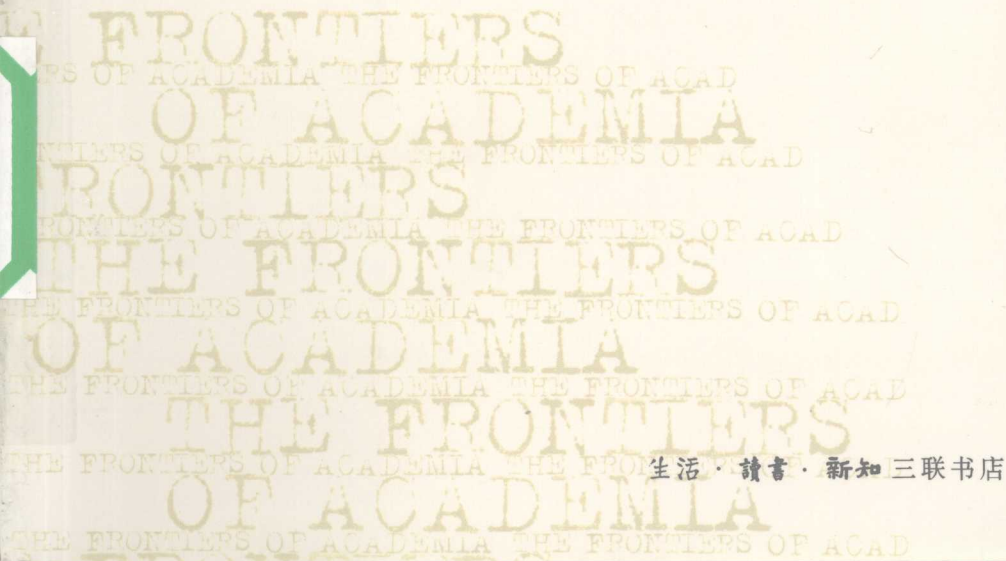 FRONTIERS
RS OF ACADEMIA THE FRONTIERS OF ACAD
OF ACADEMIA
NTIERS OF ACADEMIA THE FRONTIERS OF ACAD
RONTIERS
FRONTIERS OF ACADEMIA THE FRONTIERS OF ACAD
THE FRONTIERS
THE FRONTIERS OF ACADEMIA THE FRONTIERS OF ACAD
OF ACADEMIA
THE FRONTIERS OF ACADEMIA THE FRONTIERS OF ACAD
THE FRONTIERS
THE FRONTIERS OF ACADEMIA
生活·讀書·新知 三联书店
OF ACADEMIA
THE FRONTIERS OF ACADEMIA THE FRONTIERS OF ACAD